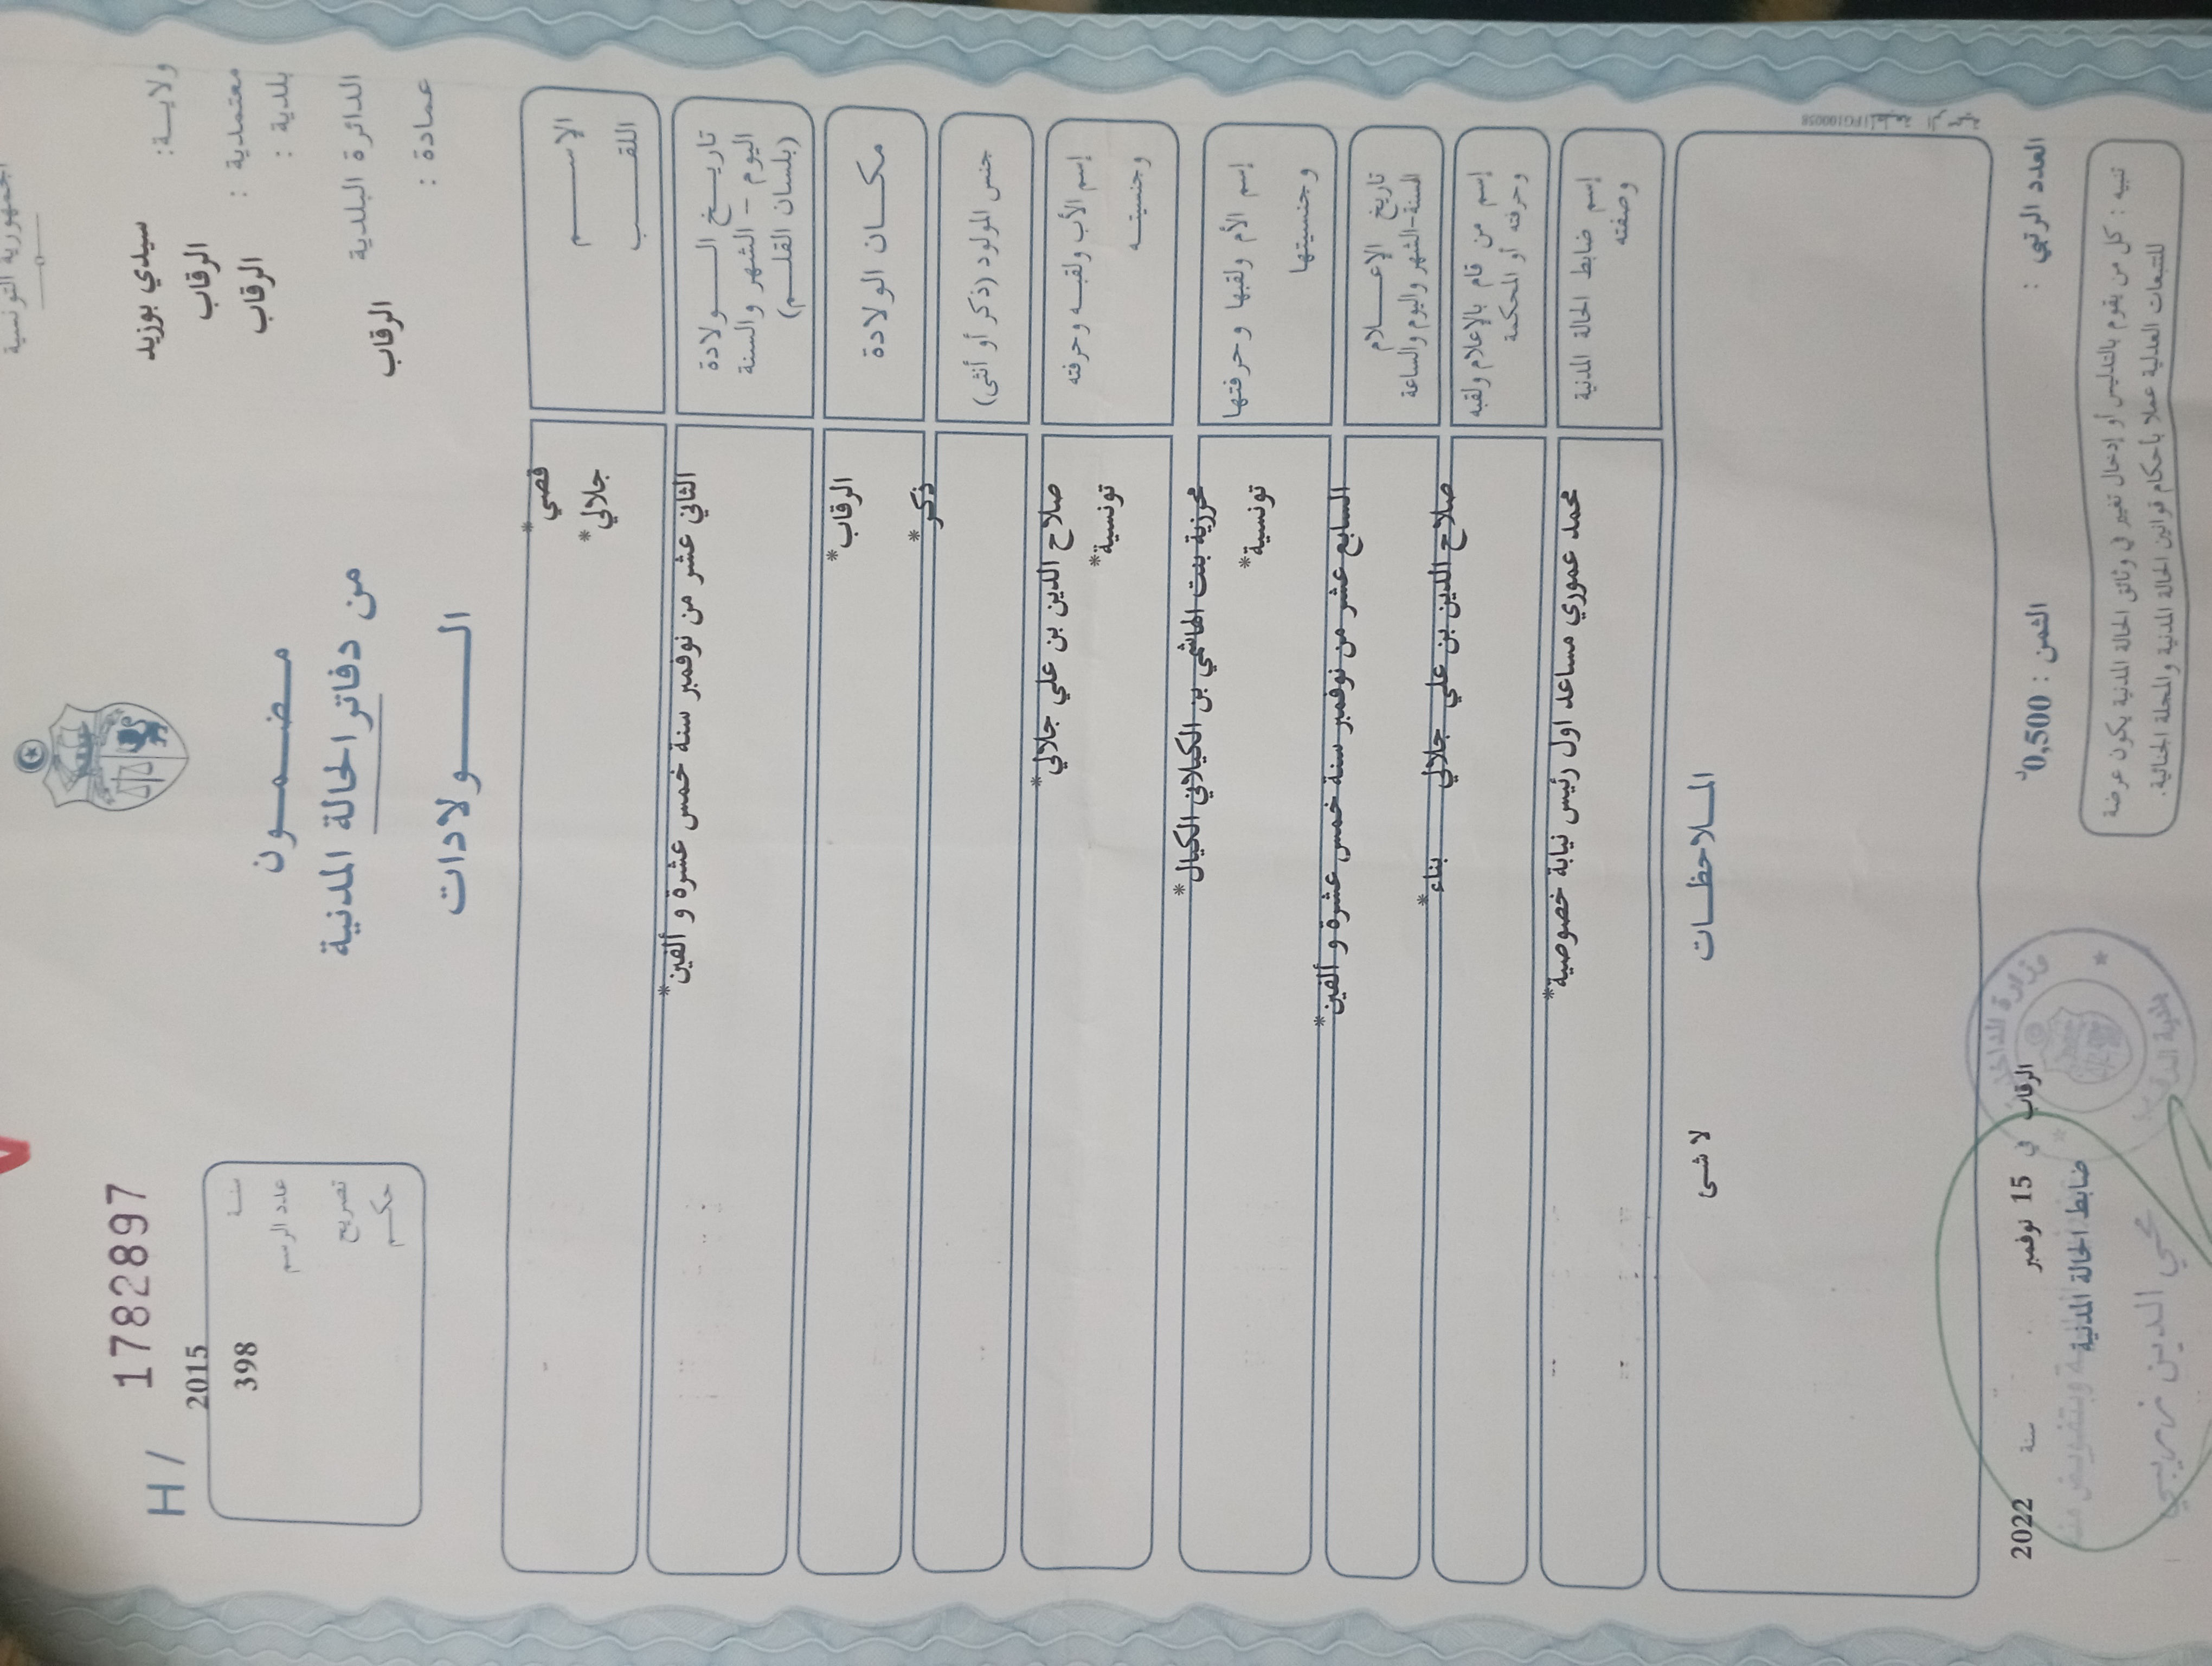 الجمهورية التونسية
ولايـــة: سيدي بوزيد
معتمدية : الرقاب
بلدية : الرقاب
الدائرة البلدية
الرقاب
عمادة :
مـضـمــون
من دفاتر الحالة المدنية
الــــولادات
H / 1782897
2015
سنـة
398
عدد الرسم
تصريح
حكـم
الإســــم
قصي*
اللقــــب
جلالي*
تاريــخ الـــولادة
اليوم – الشهر والسنة
(بلسان القلــم)
الثاني عشر من نوفمبر سنة خمس عشرة و ألفين*
مكــان الولادة
الرقاب*
جنس المولود (ذكر أو أنثى)
ذكر*
إسم الأب ولقبـه وحرفته
صلاح الدين بن علي جلالي*
وجنسيتــه
تونسية*
إسم الأم ولقبها وحرفتها
محرزية بنت الهاشمي بن الكيلاني الكيال*
وجنسيتها
تونسية*
تاريخ الإعــــلام
السنة-الشهر واليوم والساعة
السابع عشر من نوفمبر سنة خمس عشرة و ألفين*
إسم من قام بالإعلام ولقبه
وحرفته أو المحكمة
صلاح الدين بن علي جلالي بناء*
إسم ضابط الحالة المدنية
وصفته
محمد عموري مساعد اول رئيس نيابة خصوصية*
المــلاحظــات
لا شىء
العدد الرتبي :
الثمن : 0,500د
الرقاب في 15 نوفمبر سنة 2022
ضابط الحالة المدنية
محي الدين
تنبيه : كل من يقوم بالتدليس أو إدخال تغيير في وثائق الحالة المدنية يكون عرضة
للتتبعات العدلية عملا بأحكام قوانين الحالة المدنية والمجلة الجنائية.
وزارة الداخلية